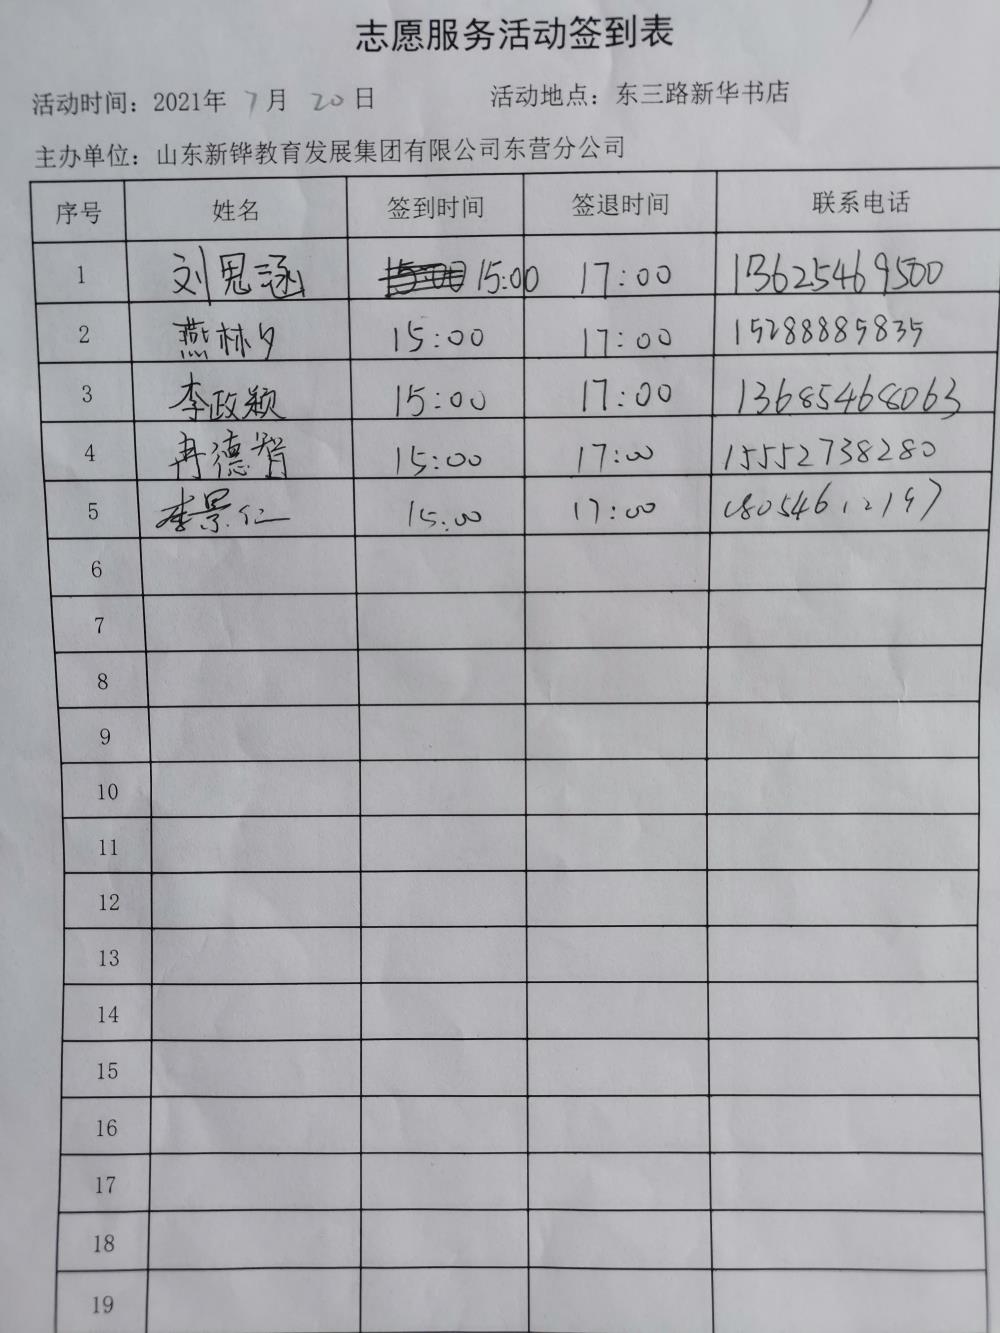 志愿服务活动签到表
活动时间：2021年 7月 20日 活动地点：东三路新华书店
主办单位：山东新铧教育发展集团有限公司东营分公司
序号 姓名 签到时间 签退时间 联系电话
1 刘思涵 15:00 17:00 13625469500
2 燕林夕 15:00 17:00 15288885835
3 李政颖 15:00 17:00 13685468063
4 冉德智 15:00 17:00 15552738280
5 李景仁 15:00 17:00 18054612197
6
7
8
9
10
11
12
13
14
15
16
17
18
19